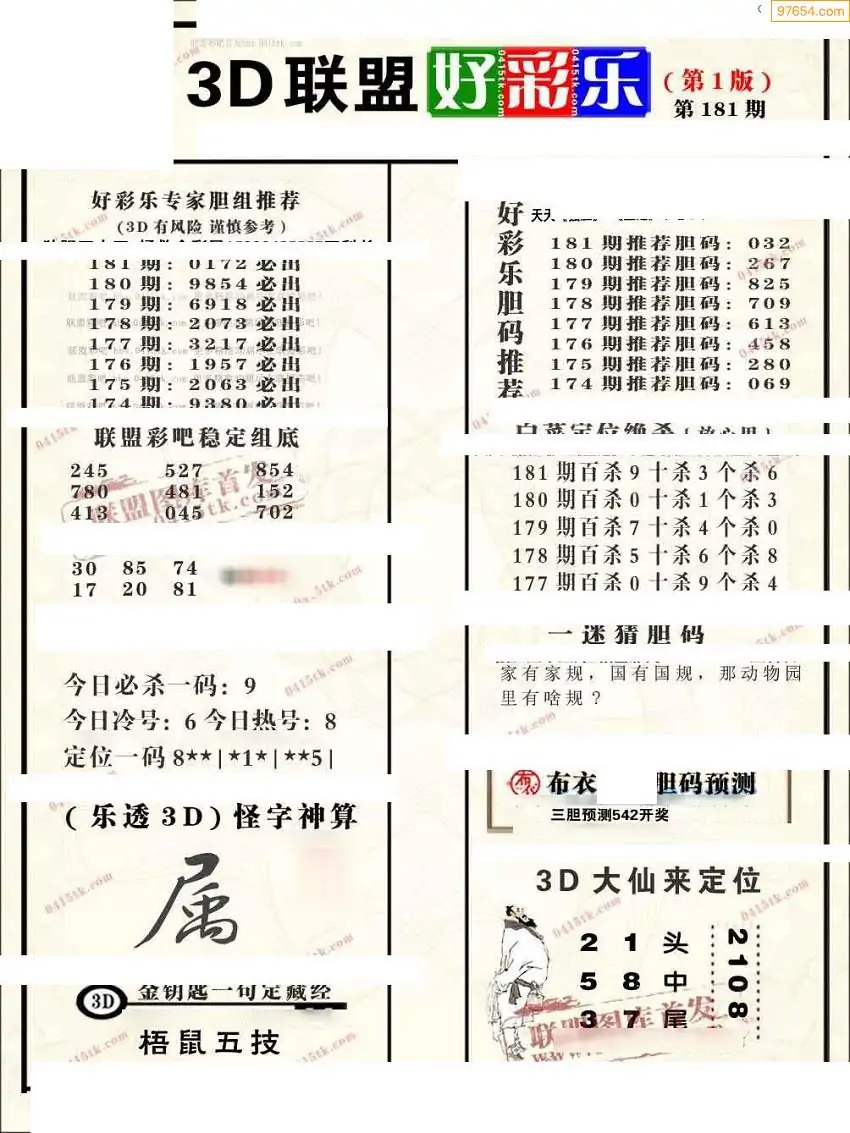 97654.com
3D联盟好彩乐(第1版)
第181期
好彩乐专家胆组推荐
(3D有风险 谨慎参考)
181期: 0172必出
180期: 9854必出
179期: 6918必出
178期: 2073必出
177期: 3217必出
176期: 1957必出
175期: 2063必出
174期: 9380必出
联盟彩吧稳定组底
245 527 854
780 481 152
413 045 702
30 85 74
17 20 81
今日必杀一码: 9
今日冷号: 6 今日热号: 8
定位一码 8**|*1*|**5|
(乐透3D)怪字神算
属
3D 金钥匙一句定藏经
梧鼠五技
好彩乐胆码推荐
181期推荐胆码: 032
180期推荐胆码: 267
179期推荐胆码: 825
178期推荐胆码: 709
177期推荐胆码: 613
176期推荐胆码: 458
175期推荐胆码: 280
174期推荐胆码: 069
181期百杀9十杀3个杀6
180期百杀0十杀1个杀3
179期百杀7十杀4个杀0
178期百杀5十杀6个杀8
177期百杀0十杀9个杀4
一迷猜胆码
家有家规，国有国规，那动物园
里有啥规?
布衣 胆码预测
三胆预测542开奖
3D大仙来定位
2 1 头
5 8 中
3 7 尾
2108
联盟图库首发
0415tk.com